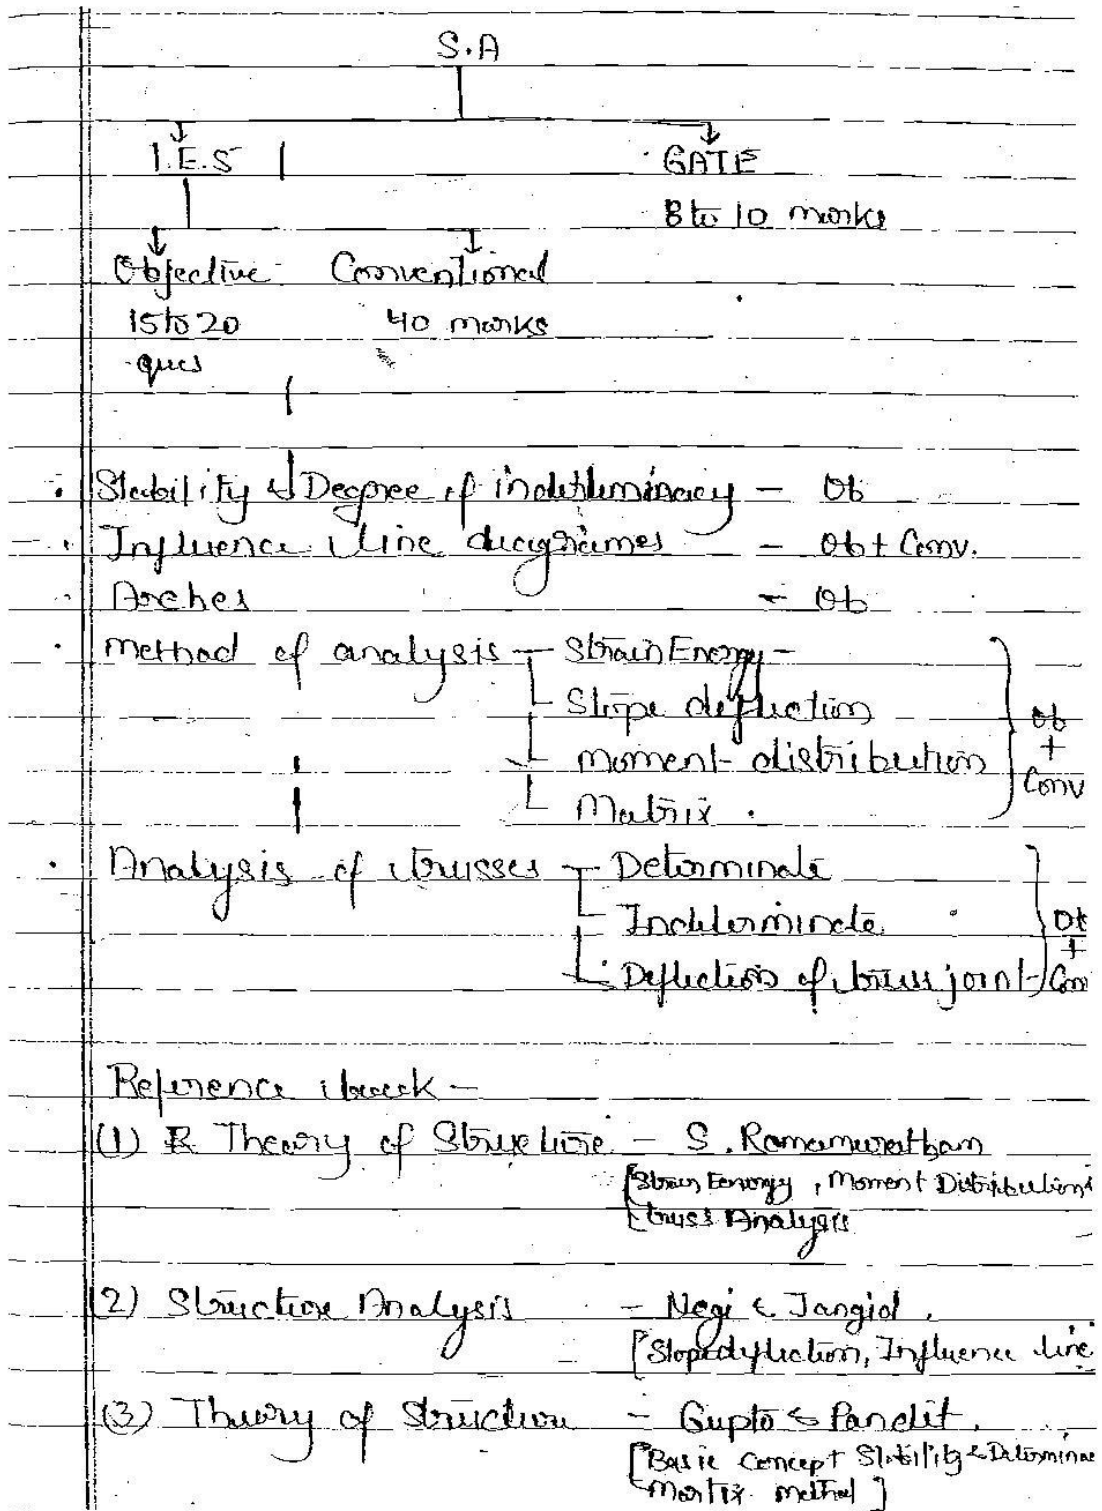 S.A
I.E.S GATE
8 to 10 marks
Objective Conventional
15 to 20 40 marks
ques
Stability & Degree of indeterminacy - Ob
Influence line diagrames - Ob + Conv.
Arches - Ob
Method of analysis - Strain Energy -
Slope deflection
Moment distribution
Matrix.
Ob
+
Conv
Analysis of trusses - Determinate
Indeterminate
Deflection of truss joint
Ob
+
Con
Reference book -
(1) Theory of Structure - S. Ramamuratham
[Strain Eenergy, Moment Distribution
truss Analysis
(2) Structure Analysis - Negi & Jangid.
[Slope deflection, Influence line
(3) Theory of Structure - Gupta & Pandit.
[Basic Concept Stability & Determinae
Matrix method]